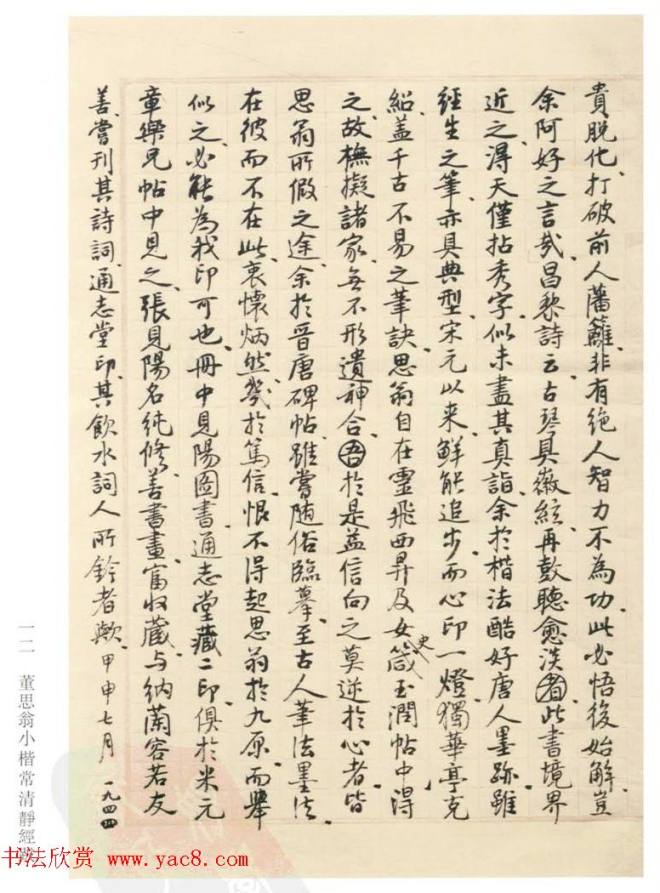 貴脫化、打破前人藩籬、非有絕人智力不為功、此必悟後始解、豈
余阿好之言哉、昌黎詩云、古琴具徽絃、再鼓聽愈淡者、此書境界
近之、得天僅拈秀字、似未盡其真詣、余於楷法酷好唐人墨跡、雖
經生之筆、亦具典型、宋元以來、鮮能追步、而心印一燈、獨華亭克
紹、蓋千古不易之筆訣、思翁自在靈飛西昇及女史箴玉潤帖中得
之、故橅擬諸家、無不形遺神合、吾於是益信向之莫逆於心者、皆
思翁所假之途、余於晉唐碑帖、雖嘗隨俗臨摹、至古人筆法墨法、
在彼而不在此、衷懷炳然、幾於篤信、恨不得起思翁於九原、而舉
似之、必能為我印可也、冊中見陽圖書、通志堂藏二印、俱於米元
章樂兄帖中見之、張見陽名純修、善書畫、富收藏、与納蘭容若友
善、嘗刊其詩詞、通志堂印、其飲水詞人所鈐者歟、甲申七月 一九四四
一二 董思翁小楷常清靜經
书法欣赏 www.yac8.com